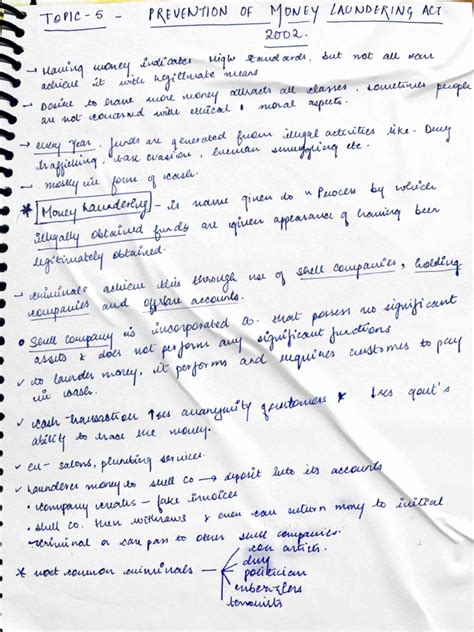 TOPIC-5 - PREVENTION OF MONEY LAUNDERING ACT.
2002.
→ Having money indicates High standards, but not all can
achieve it with legitimate means
→ Desire to have more money attracts all classes, sometimes people
are not concerned with ethical & moral aspects.
→ every year, funds are generated from illegal activities like - Drug
trafficking, tax evasion, human smuggling etc.
→ mostly in form of cash.
* Money Laundering - is name given to "Process by which
illegally obtained funds are given appearance of having been
legitimately obtained.
→ criminals achieve this through use of shell companies, holding
companies and offshore accounts.
• Shell company is incorporated co. that possess no significant
assets & does not perform any significant functions
✓ to launder money, it performs and requires customers to pay
in cash.
✓ cash-transaction ↑ses anonymity of customers & ↓ses govt's
ability to trace the money.
✓ ex- salons, plumbing services.
✓ Launderer money to shell co → deposit into its accounts
• company creates - fake invoices
• shell co. then withdraws & even can return money to initial
criminal or can pass to other shell companies.
* most common criminals — con artists.
drug
politician
embezzlers
terrorists